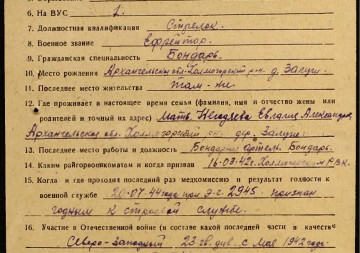 6. На ВУС 1.
7. Должностная квалификация Стрелок.
8. Военное звание Ефрейтор.
9. Гражданская специальность Бондарь.
10. Место рождения Архангельская обл. Холмогорский р-н. д. Залуш.
11. Последнее место жительства там-же
12. Где проживает в настоящее время семья (фамилия, имя и отчество жены или
родителей и точный их адрес) Мать. Евдалие Александров,
Архангельская обл. Холмогорский р-н. дер. Залуш.
13. Последнее место работы и должность Бондарная артель. Бондарь.
14. Каким райгорвоенкоматом и когда призван 16.03.42г. Холмогорским РВК.
15. Когда и где проходил последний раз медкомиссию и результат годности к
военной службе 20.07.44 года при Э.Г. 2945. признан
годным к строевой службе.
16. Участие в Отечественной войне (в составе какой последней части в качестве
Северо-западный 23 гв. див. с Мая 1942 года